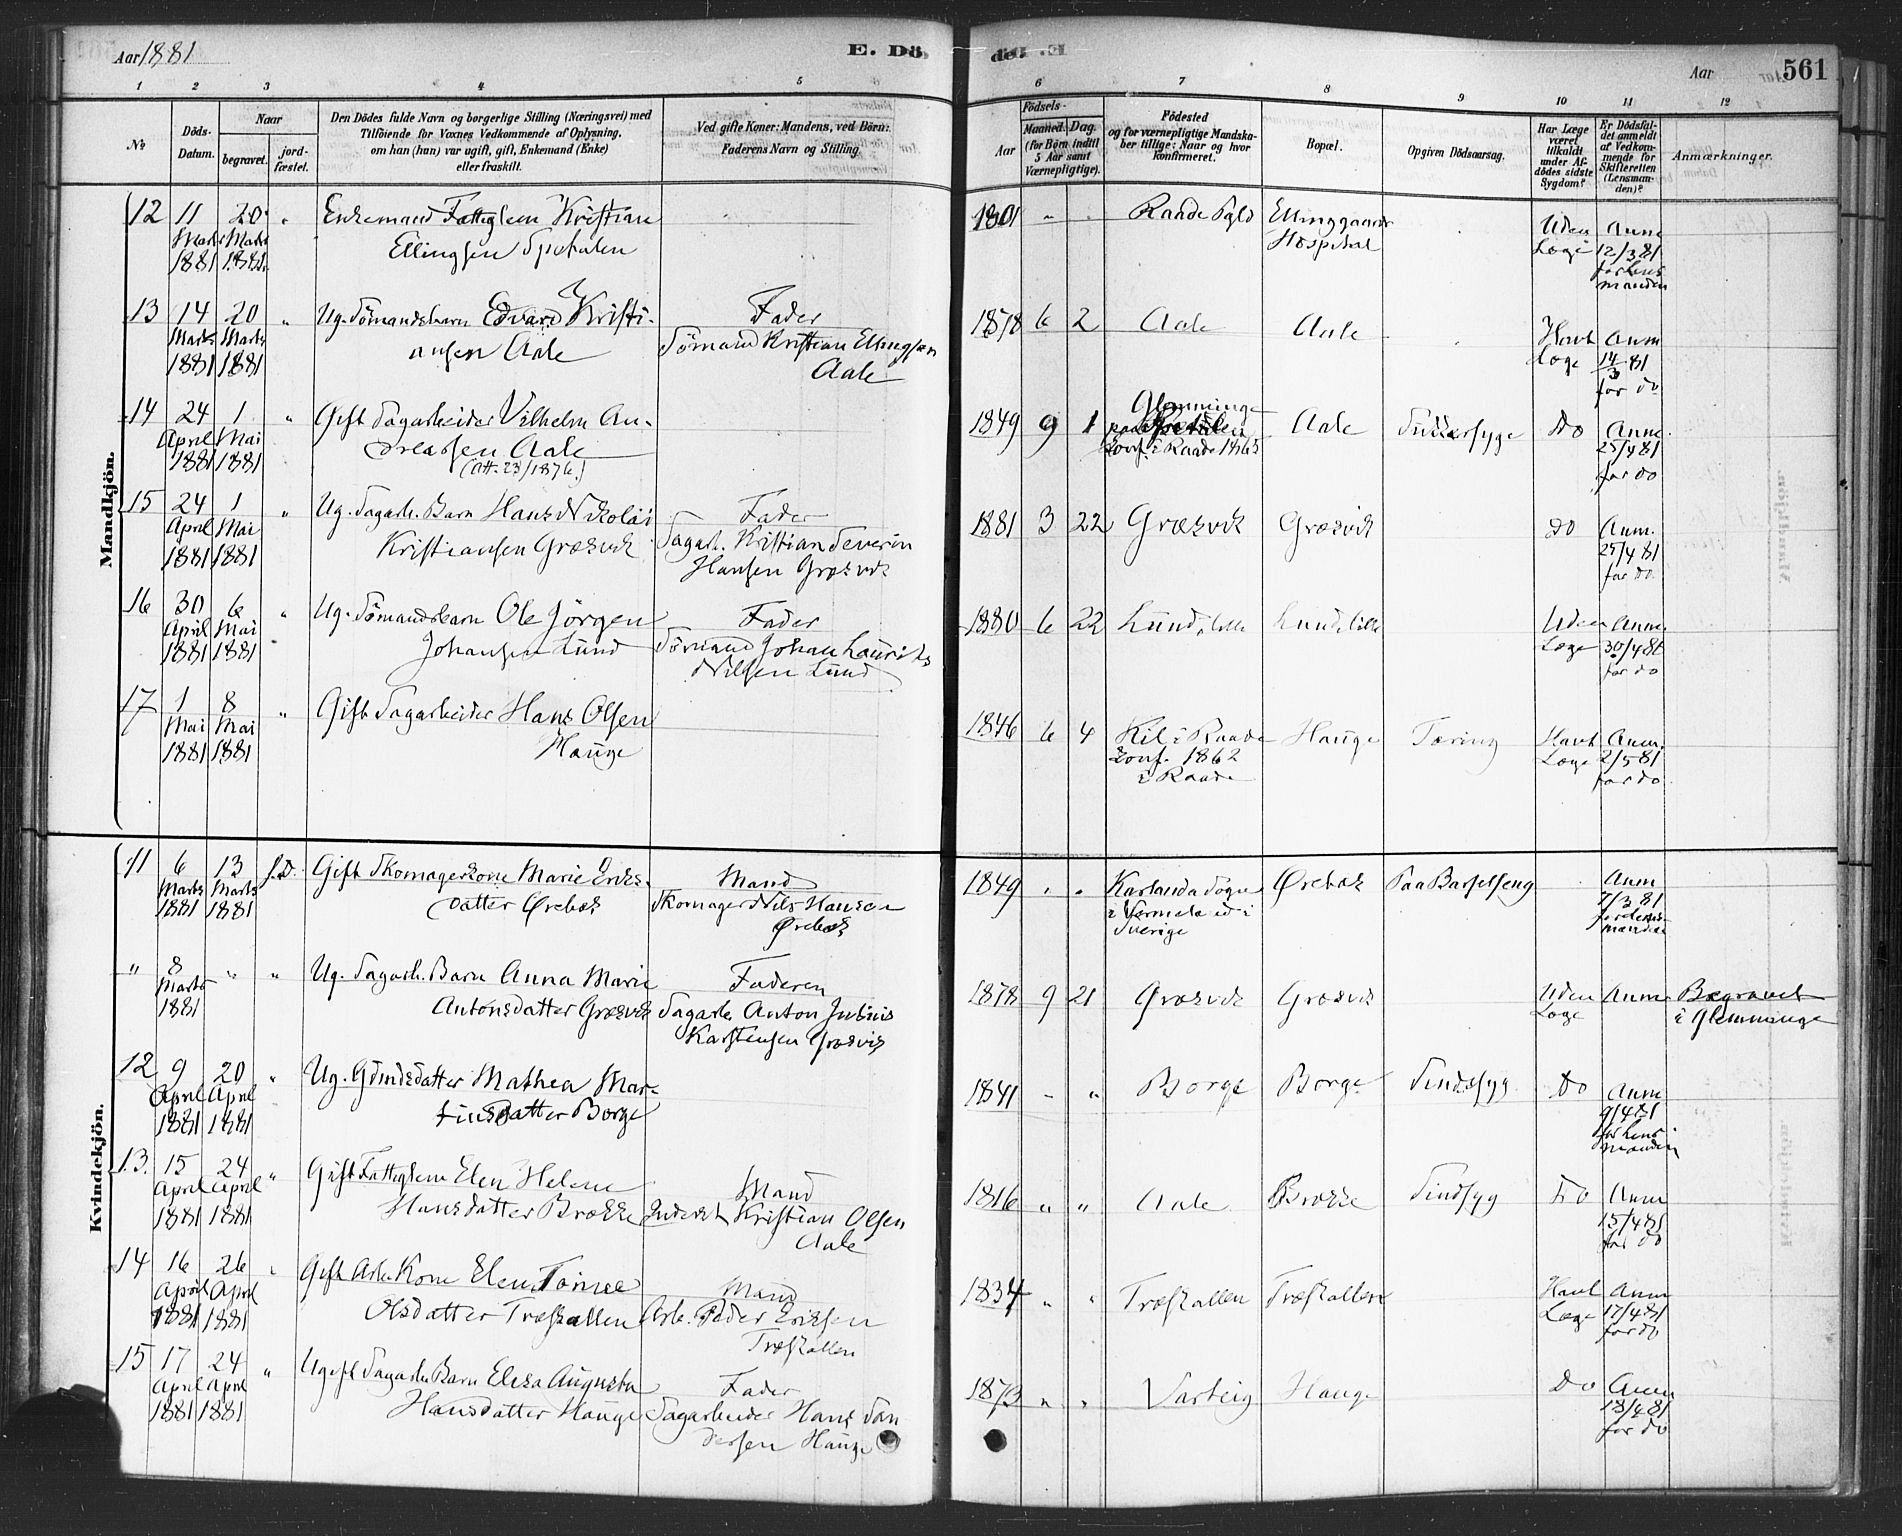 Aar 1881
E. Dö-
de. E.
Aar
561
1 2 3 4 5 6 7 8 9 10 11 12
№
Döds-
Datum.
Naar
begravet.
jord-
fæstet.
Den Dödes fulde Navn og borgerlige Stilling (Næringsvei) med
Tilföiende for Voxnes Vedkommende af Oplysning,
om han (hun) var ugift, gift, Enkemand (Enke)
eller fraskilt.
Ved gifte Koner: Mandens, ved Börn:
Faderens Navn og Stilling.
Födsels-
Aar
Maaned. Dag.
(for Börn indtil
5 Aar samt
Værnepligtige).
Födested
og for værnepligtige Mandska-
ber tillige: Naar og hvor
konfirmeret.
Bopæl.
Opgiven Dödsaarsag.
Har Læge
været
tilkaldt
under Af-
dödes sidste
Sygdom?
Er Dödsfal-
det anmeldt
af Vedkom-
mende for
Skifteretten
(Lensman-
den)?
Anmærkninger.
Mandkjön.
12 11 20 "
Marts Marts
1881 1881
Enkemand Fattiglem Kristian
Ellingsen Spetalen
1801 " Raade Pgld
Elinggaards
Hospital
Uden
Læge
Anm
12/3 81
for Lens
manden
13 14 20 "
Marts Marts
1881 1881
Ug. Sömandsbarn Edvard Kristi-
ansen Aale
Fader
Sömand Kristian Ellingsen
Aale
1878 6 2 Aale Aale
Havt
Læge
Anm
14/3 81
for do
14 24 1 "
April Mai
1881 1881
Gift Sagarbeider Vilhelm An-
dreassen Aale
(Att. 23/1876.)
1849 9 1
Glemminge
Konf. i Raade 1865
Aale
Do
Anm.
25/4 81
for do
15 24 1 "
April Mai
1881 1881
Ug. Sagarb. Barn Hans Nikolai
Kristiansen Græsvik
Fader
Sagarb. Kristian Severin
Hansen Græsvik
1881 3 22 Græsvik Græsvik
Do
Anm.
25/4 81
for do
16 30 6 "
April Mai
1881 1881
Ug. Sömandsbarn Ole Jörgen
Johansen Lund
Fader
Sömand Johan Laurits
Nilsen Lund
1880 6 22 Lund, lille Lund, lille
Uden
Læge
Anm.
30/4 81
for do
17 1 8 "
Mai Mai
1881 1881
Gift Sagarbeider Hans Olsen
Hauge
1846 6 4
Kil i Raade
Konf. 1862
i Raade
Hauge
Tæring
Havt
Læge
Anm.
2/5 81
for do
Kvindekjön.
11 6 13 f.D.
Marts Marts
1881 1881
Gift Skomagerkone Marie Eriks-
datter Örebæk
Mand
Skomager Nils Hansen
Örebæk
1849 " "
Karlanda Sogn
i Vermeland i
Sverige
Ørebæk
Paa Barselseng
Anm
7/3 81
for Lens-
manden
" 8 " "
Marts
1881
Ug. Sagarb. Barn Anna Marie
Antonsdatter Græsvik
Faderen
Sagarb. Anton Julius
Karstensen Græsvik
1878 9 21 Græsvik Græsvik
Uden
Læge
Anm
Begravet
i Glemminge
12 9 20 "
April April
1881 1881
Ug. Gdmdsdatter Mathea Mar-
tinsdatter Borge
1841 " " Borge Borge Sindssyg
Do
Anm
9/4 81
for Lens
manden
13. 15 24 "
April April
1881 1881
Gift Fattiglem Elen Helene
Hansdatter Brække
Mand
Inderst Kristian Olsen
Aale
1816 " " Aale Brække Sindsyg
Do
Anm
15/4 81
for do
14 16 26 "
April April
1881 1881
Gift Arb. Kone Elen Tomine
Olsdatter Træskallen
Mand
Arb. Peder Eriksen
Træskallen
1834 " " Træskallen Træskallen
Havt
Læge
Anm
17/4 81
for do
15 17 24 "
April April
1881 1881
Ugift Sagarb. Barn Elesa Augusta
Hansdatter Hauge
Fader
Sagarbeider Hans San
dersen Hauge
1873 " " Varteig Hauge
Do
Anm
18/4 81
for do